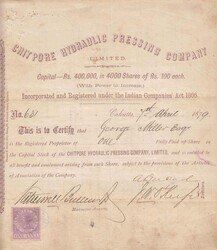 CHITPORE HYDRAULIC PRESSING COMPANY
LIMITED
Capital—Rs. 400,000, in 4000 Shares of Rs. 100 each.
(With Power to Increase)
Incorporated and Registered under the Indian Companies' Act 1866.
No. 631 Calcutta, April 1879
This is to Certify that George Miller Esqr
is the Registered Proprietor of One Fully-Paid of Shares in
the Capital Stock of the CHITPORE HYDRAULIC PRESSING COMPANY, LIMITED, and is entitled to the
benefit and emolument arising from such Shares, subject to the provisions of the Articles
of Association of the Company.